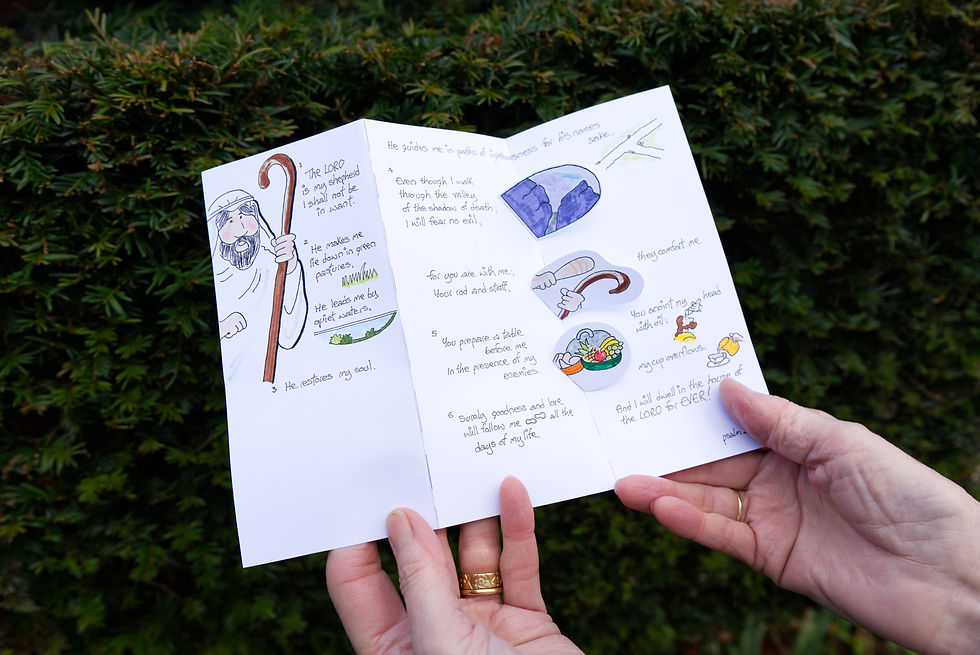 1
The LORD
is my shepherd
I shall not be
in want.
2
He makes me
lie down in green
pastures.
He leads me by
quiet waters,
3 He restores my soul.
He guides me in paths of righteousness for his names
sake.
4
Even though I walk
through the valley
of the shadow of death
I will fear no evil,
for you are with me;
Your rod and staff,
they comfort me.
5
You prepare a table
before me
In the presence of my
enemies.
You anoint my head
with oil;
my cup overflows.
6 Surely goodness and love
will follow me all the
days of my life,
And I will dwell in the house of
the LORD for EVER!
psalm